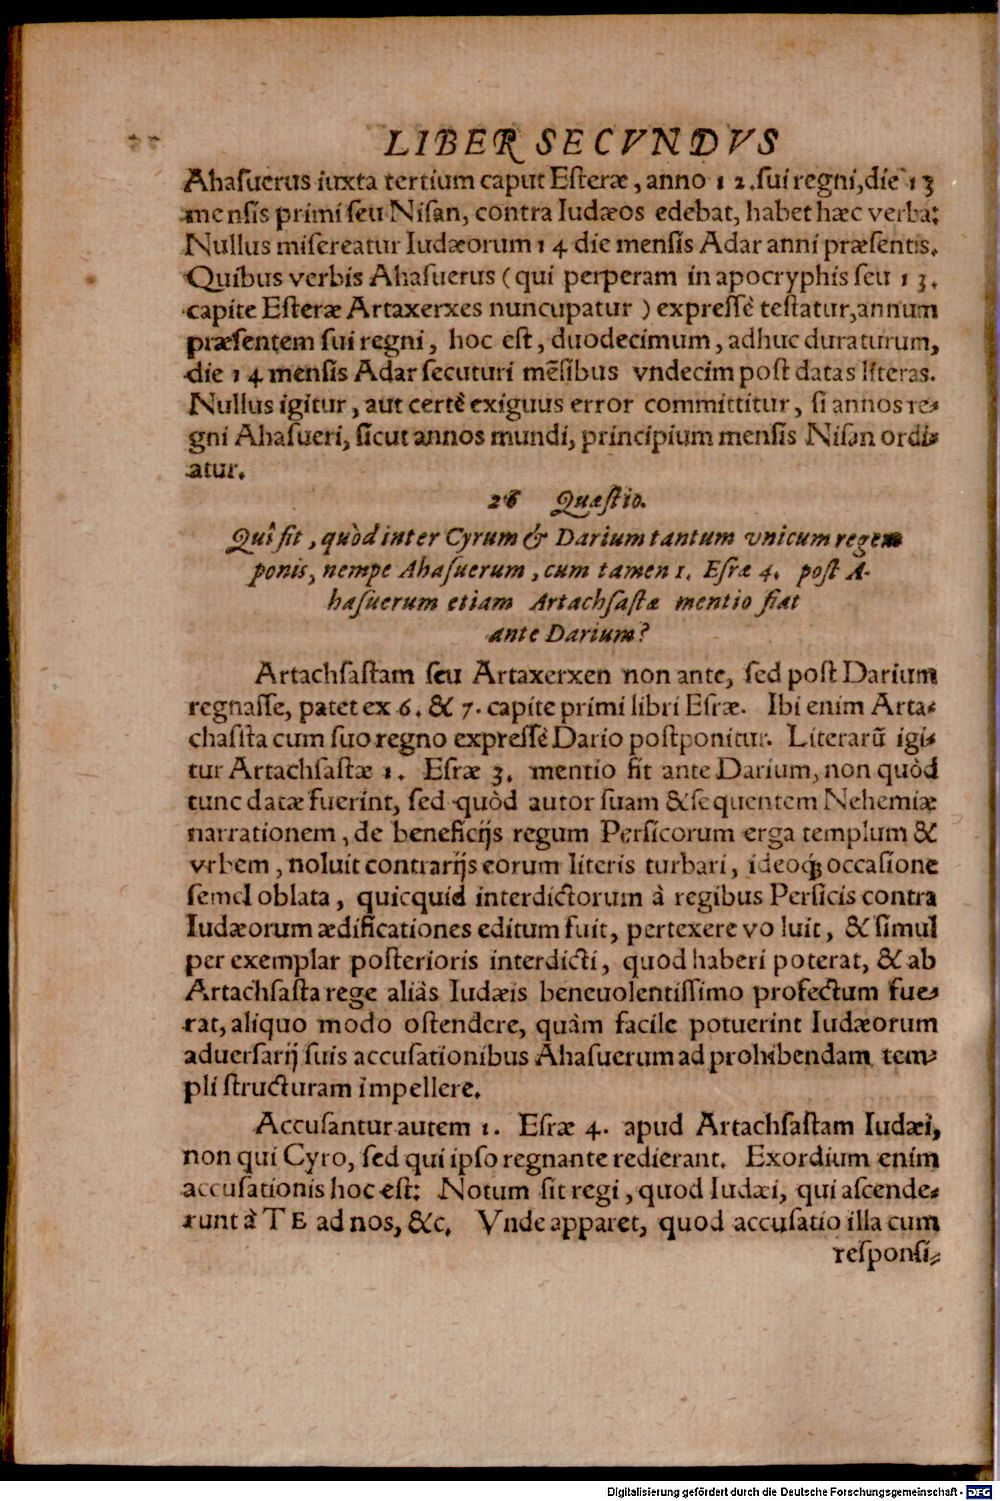 LIBER SECVNDVS
Ahaſuerus iuxta tertium caput Eſteræ, anno 12. ſui regni, die 13
menſis primi ſeu Niſan, contra Iudæos edebat, habet hæc verba:
Nullus miſereatur Iudæorum 14 die menſis Adar anni præſentis.
Quibus verbis Ahaſuerus (qui perperam in apocryphis ſeu 13.
capite Eſteræ Artaxerxes nuncupatur) expreſſè teſtatur, annum
præſentem ſui regni, hoc eſt, duodecimum, adhuc duraturum,
die 14 menſis Adar ſecuturi mẽſibus vndecim poſt datas literas.
Nullus igitur, aut certè exiguus error committitur, ſi annos re-
gni Ahaſueri, ſicut annos mundi, principium menſis Niſan ordi-
atur.
26 Quæſtio.
Quî fit, quòd inter Cyrum & Darium tantum vnicum regem
ponis, nempe Ahaſuerum, cum tamen 1. Eſræ 4. poſt A-
haſuerum etiam Artachſaſtæ mentio fiat
ante Darium?
Artachſaſtam ſeu Artaxerxen non ante, ſed poſt Darium
regnaſſe, patet ex 6. & 7. capite primi libri Eſræ. Ibi enim Arta-
chaſſta cum ſuo regno expreſſè Dario poſtponitur. Literarũ igi-
tur Artachſaſtæ 1. Eſræ 3. mentio fit ante Darium, non quòd
tunc datæ fuerint, ſed quòd autor ſuam & ſequentem Nehemiæ
narrationem, de beneficijs regum Perſicorum erga templum &
vrbem, noluit contrarijs eorum literis turbari, ideoq́ꝫ occaſione
ſemel oblata, quicquid interdictorum à regibus Perſicis contra
Iudæorum ædificationes editum fuit, pertexere voluit, & ſimul
per exemplar poſterioris interdicti, quod haberi poterat, & ab
Artachſaſta rege aliàs Iudæis beneuolentiſſimo profectum fue-
rat, aliquo modo oſtendere, quàm facile potuerint Iudæorum
aduerſarij ſuis accuſationibus Ahaſuerum ad prohibendam tem-
pli ſtructuram impellere.
Accuſantur autem 1. Eſræ 4. apud Artachſaſtam Iudæi,
non qui Cyro, ſed qui ipſo regnante redierant. Exordium enim
accuſationis hoc eſt: Notum ſit regi, quod Iudæi, qui aſcende-
runt à TE ad nos, &c. Vnde apparet, quod accuſatio illa cum
reſponſi-
Digitalisierung gefördert durch die Deutsche Forschungsgemeinschaft - DFG